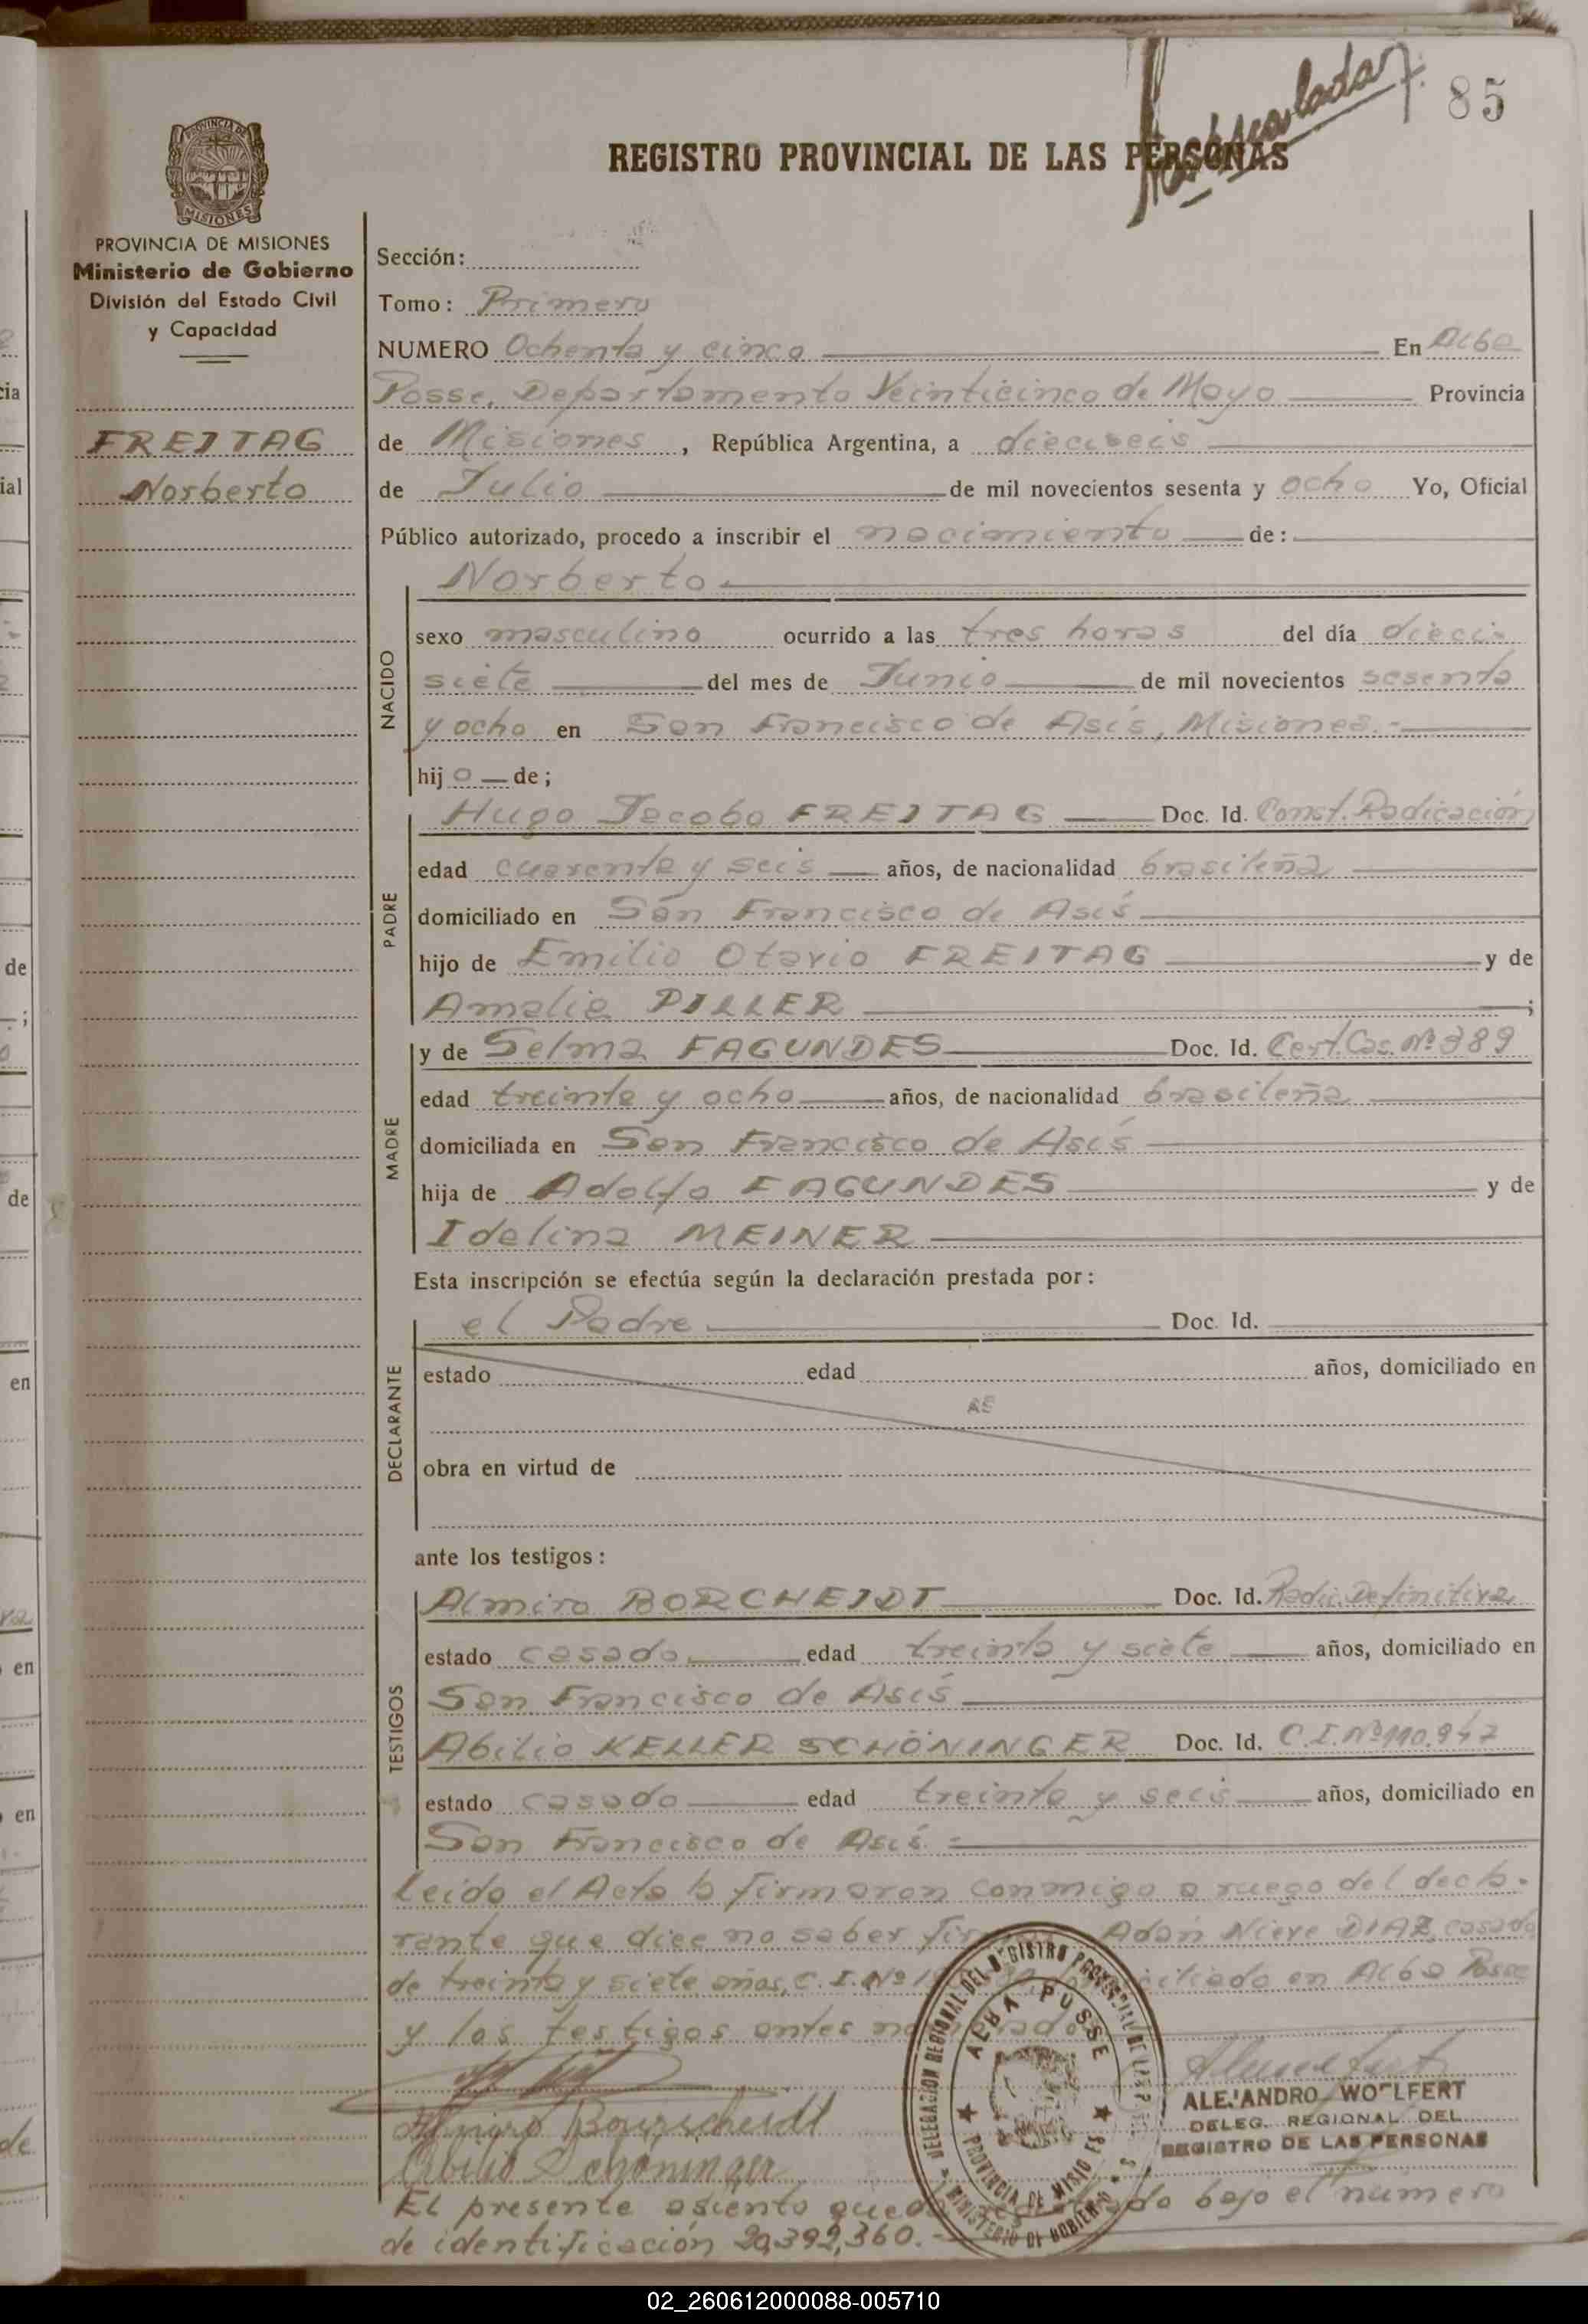 85
REGISTRO PROVINCIAL DE LAS PERSONAS
PROVINCIA DE MISIONES
PROVINCIA DE MISIONES
Ministerio de Gobierno
División del Estado Civil
y Capacidad
FREITAG
Norberto
Sección:
Tomo: Primero
NUMERO Ochenta y cinco En Alba
Posse, Departamento Veinticinco de Mayo Provincia
de Misiones, República Argentina, a dieciseis
de Julio de mil novecientos sesenta y ocho Yo, Oficial
Público autorizado, procedo a inscribir el nacimiento de:
NACIDO
Norberto
sexo masculino ocurrido a las tres horas del día dieci-
siete del mes de Junio de mil novecientos sesenta
y ocho en San Francisco de Asís, Misiones.-
hijo de;
PADRE
Hugo Jacobo FREITAG Doc. Id. Const. Radicación
edad cuarenta y seis años, de nacionalidad brasileña
domiciliado en San Francisco de Asís
hijo de Emilio Otavio FREITAG y de
Amalia PILLER ;
MADRE
y de Selma FAGUNDES Doc. Id. Cert. Cas. Nº 389
edad treinta y ocho años, de nacionalidad brasileña
domiciliada en San Francisco de Asís
hija de Adolfo FAGUNDES y de
Idelina MEINER
Esta inscripción se efectúa según la declaración prestada por:
DECLARANTE
el Padre Doc. Id.
estado edad años, domiciliado en
obra en virtud de
ante los testigos:
TESTIGOS
Almiro BORCHEIDT Doc. Id. Radic. Definitiva
estado casado edad treinta y siete años, domiciliado en
San Francisco de Asís
Abilio KELLER SCHÖNINGER Doc. Id. C.I. Nº 110.947
estado casado edad treinta y seis años, domiciliado en
San Francisco de Asís.-
Leida el Acta la firmaron conmigo a ruego del decla-
rante que dice no saber Adán Nieve DIAZ, casado
de treinta y siete años, C.I. Nº en Alba Posse
y los testigos antes
Almiro Bourscheidt
Abilio Schöninger
DELEGACION REGIONAL DEL REGISTRO PROVINCIAL DE LAS
ALBA POSSE
PROVINCIA DE MISIONES
MINISTERIO DE GOBIERNO
ALEJANDRO WOLFERT
DELEG. REGIONAL DEL
REGISTRO DE LAS PERSONAS
El presente asiento bajo el número
de identificación 20,392,360.-
02_260612000088-005710